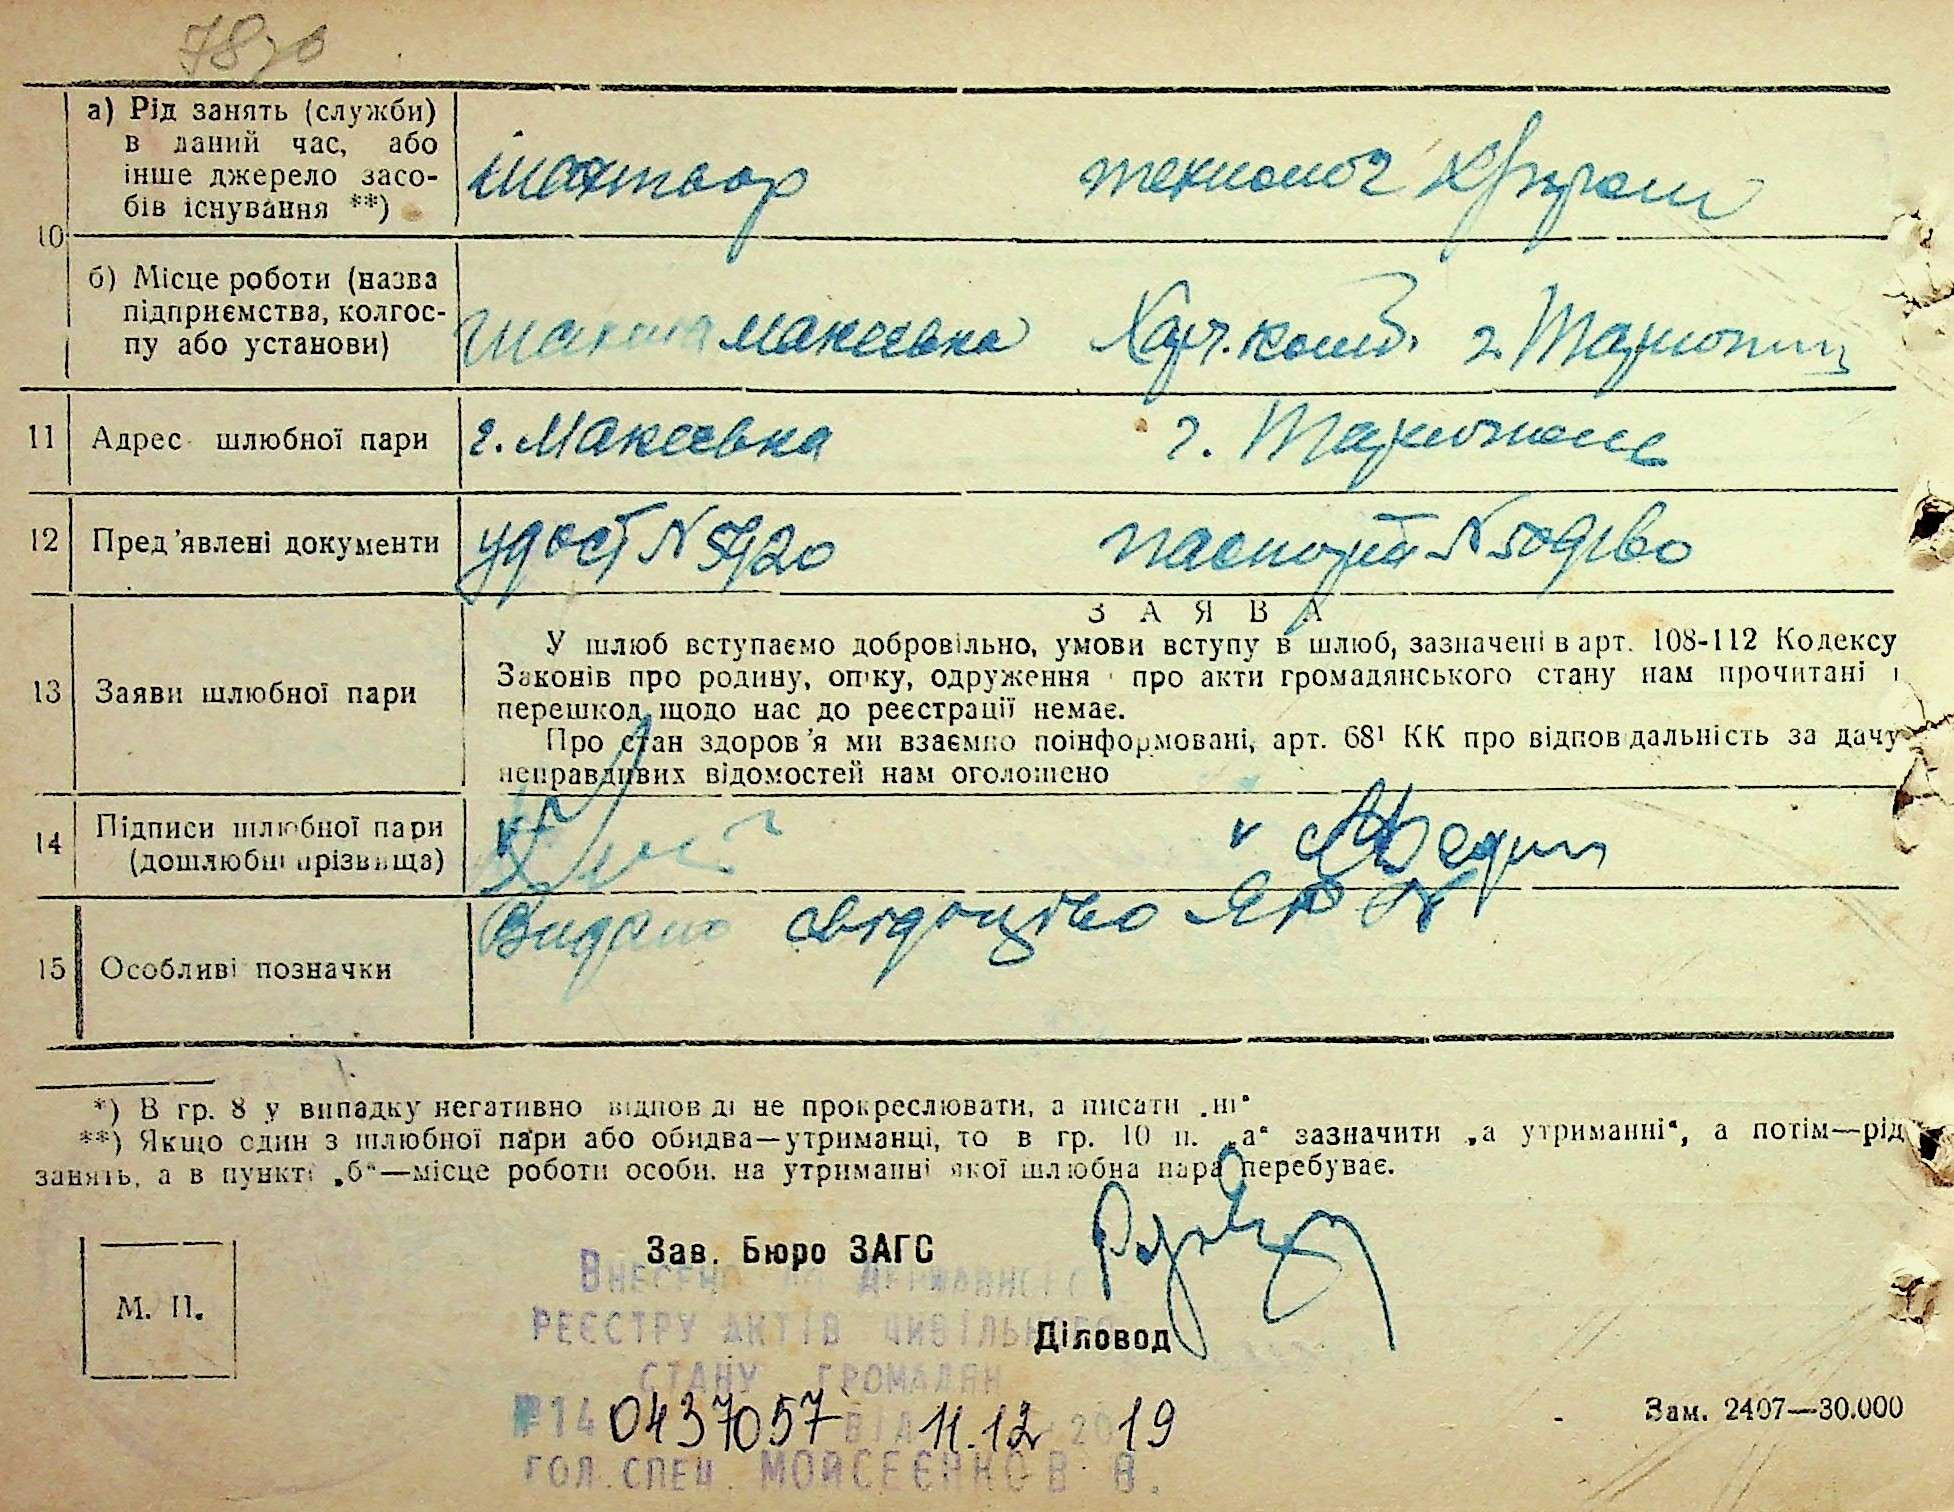 а) Рід занять (служби)
в даний час, або
інше джерело засо-
бів існування **)
шахтьор
технолог
10
б) Місце роботи (назва
підприємства, колгос-
пу або установи)
шахта Макеевка
Харч. комб. г.
11 Адрес шлюбної пари
г. Макеевка
г.
12 Пред'явлені документи
удост N 5920
паспорт N
ЗАЯВА
13 Заяви шлюбної пари
У шлюб вступаємо добровільно, умови вступу в шлюб, зазначені в арт. 108-112 Кодексу
Законів про родину, опіку, одруження і про акти громадянського стану нам прочитані і
перешкод щодо нас до реєстрації немає.
Про стан здоров'я ми взаємно поінформовані, арт. 68¹ КК про відповідальність за дачу
неправдивих відомостей нам оголошено
14 Підписи шлюбної пари
(дошлюбні прізвища)
15 Особливі позначки
Видано свідоцтво ЯР N
*) В гр. 8 у випадку негативно відповіді не прокреслювати, а писати „ні“
**) Якщо один з шлюбної пари або обидва—утриманці, то в гр. 10 п. „а“ зазначити „а утриманні“, а потім—рід
занять, а в пункті „б“—місце роботи особи, на утриманні якої шлюбна пара перебуває.
Зав. Бюро ЗАГС
М. П.
Внесено до Державного
реєстру актів цивільного
Діловод
стану громадян
№14 0437057 від 11.12 2019
Зам. 2407—30.000
гол. спец. Мойсеєнков В.